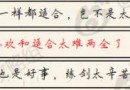 一样都适合,也不是太
欢和适合太难两全了
也是好事,练剑太辛苦